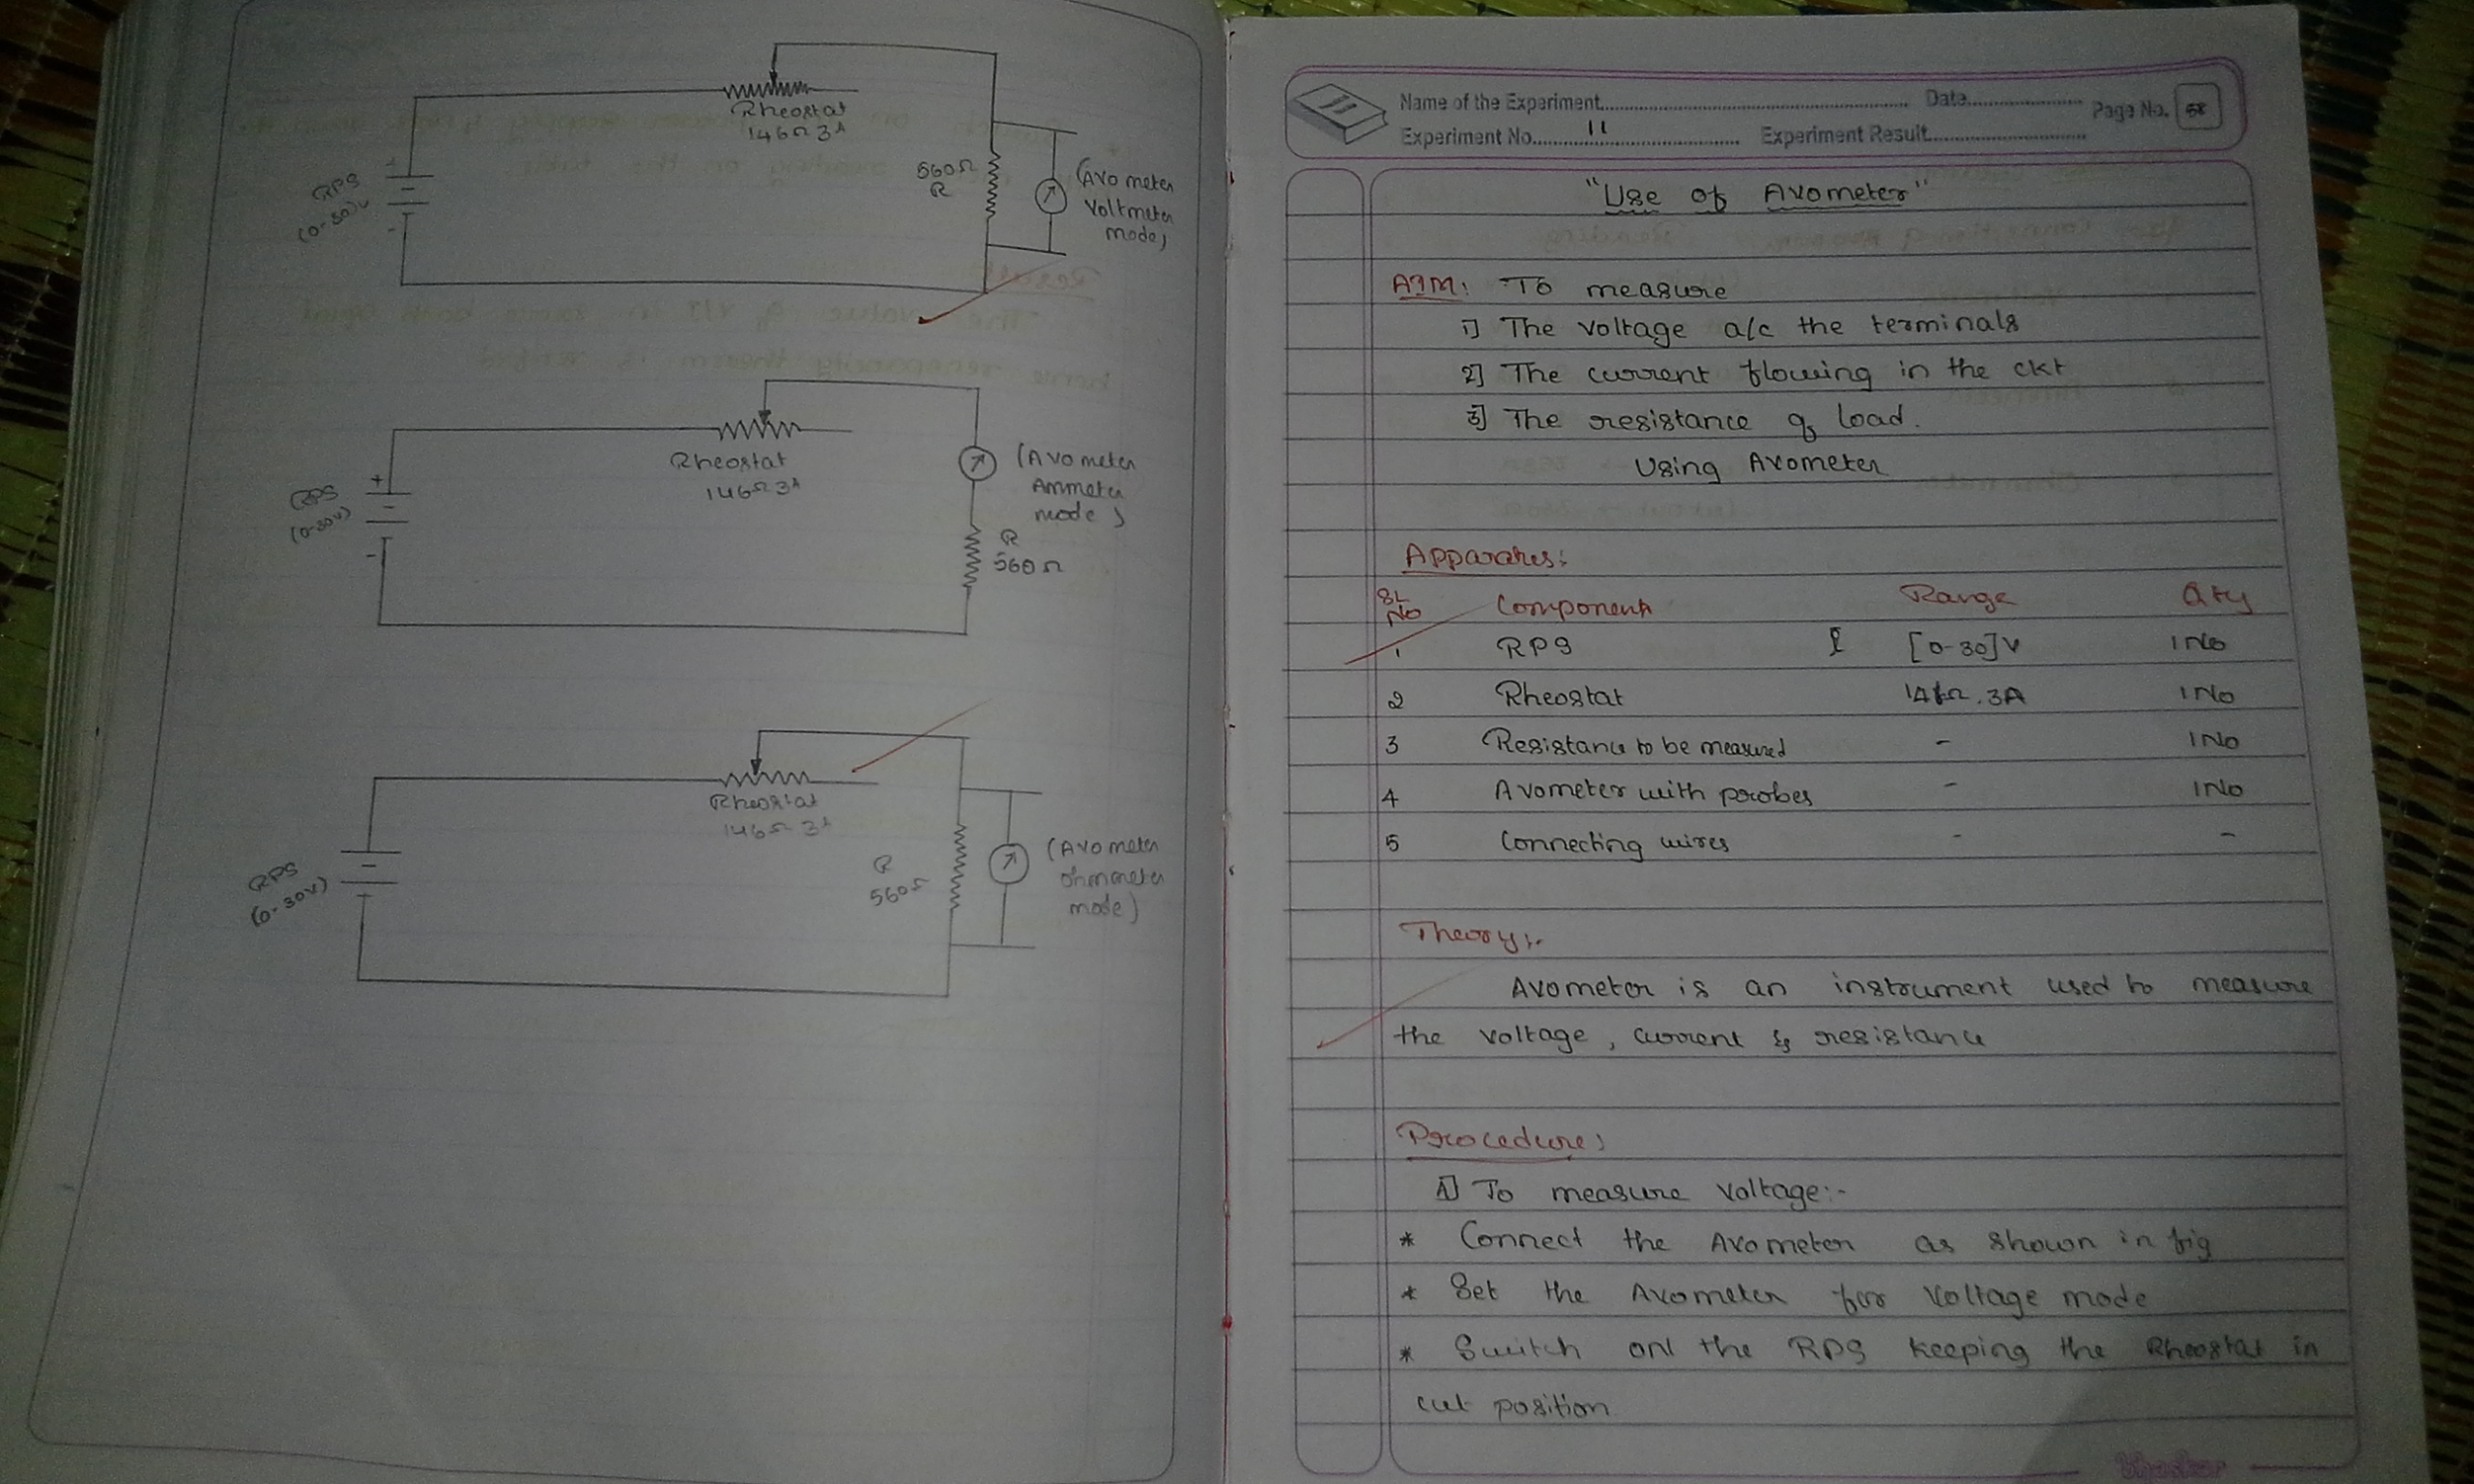 Rheostat
146Ω 3A
RPS
(0-30)V
+
-
560Ω
R
(Avo meter
Voltmeter
mode)
Rheostat
146Ω 3A
RPS
(0-30V)
+
-
(Avo meter
Ammeter
mode)
R
560Ω
Rheostat
146Ω 3A
RPS
(0-30V)
R
560Ω
(Avo meter
ohmmeter
mode)
Name of the Experiment Date Page No. 58
Experiment No. 11 Experiment Result
"Use of Avometer"
AIM: To measure
1] The voltage a/c the terminals
2] The current flowing in the ckt
3] The resistance of load.
Using Avometer
Apparatus:
SL No Component Range Qty
1 RPS [0-30]V 1No
2 Rheostat 3A 1No
3 Resistance to be measured - 1No
4 Avometer with probes - 1No
5 Connecting wires - -
Theory:-
Avometer is an instrument used to measure
the voltage, current & resistance
Procedure:
1] To measure voltage:-
* Connect the Avometer as shown in fig
* Set the Avometer for Voltage mode
* Switch on the RPS keeping the Rheostat in
cut position